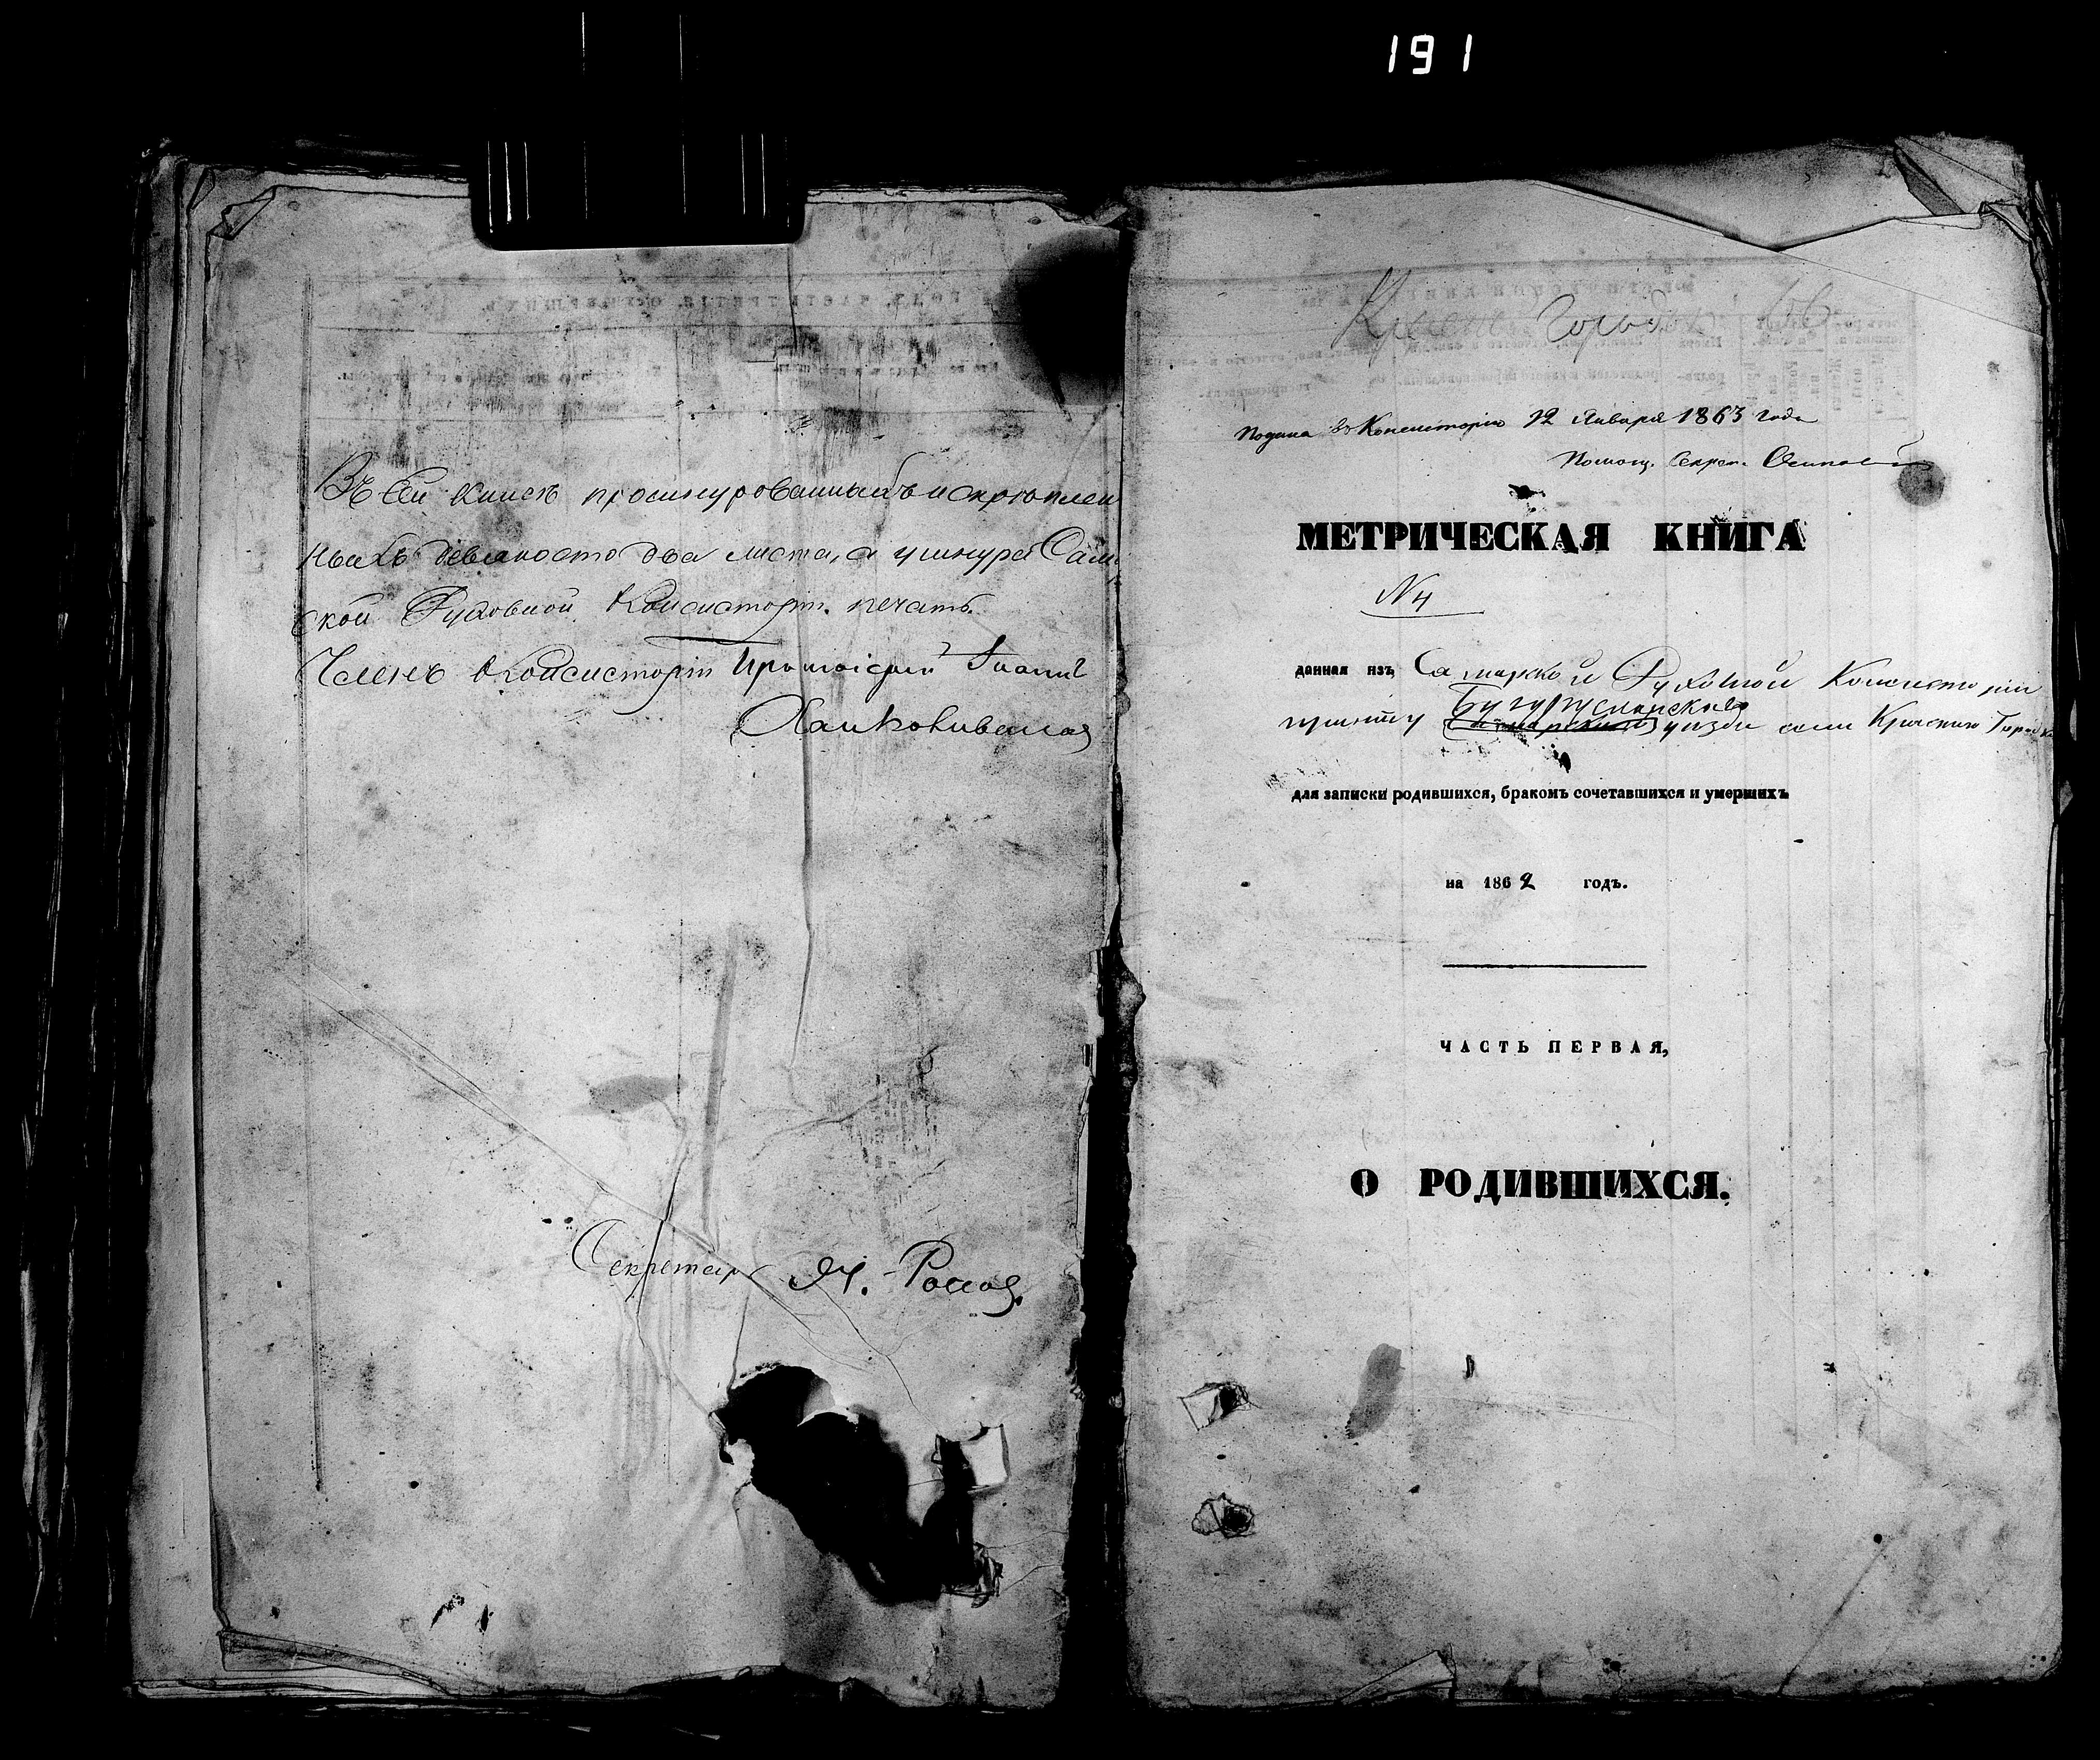 191
Въ сей книгѣ прошнурованныхъ и скрѣплен
ныхъ девяносто два листа, а у шнура Самар
ской Духовной Консисторіи печать.
Членъ Консисторіи Протоіерей Іоаннъ
Секретарь Росс
66
Подана въ Консисторію 12 Января 1863 года
Помощ. Секрет. Осипов
МЕТРИЧЕСКАЯ КНИГА
№ 4
данная изъ Самарской Духовной Консисторіи
Бугурусланскаго
причту уѣзда села Краснаго Городка
для записки родившихся, бракомъ сочетавшихся и умершихъ
на 1862 годъ.
ЧАСТЬ ПЕРВАЯ,
О РОДИВШИХСЯ.